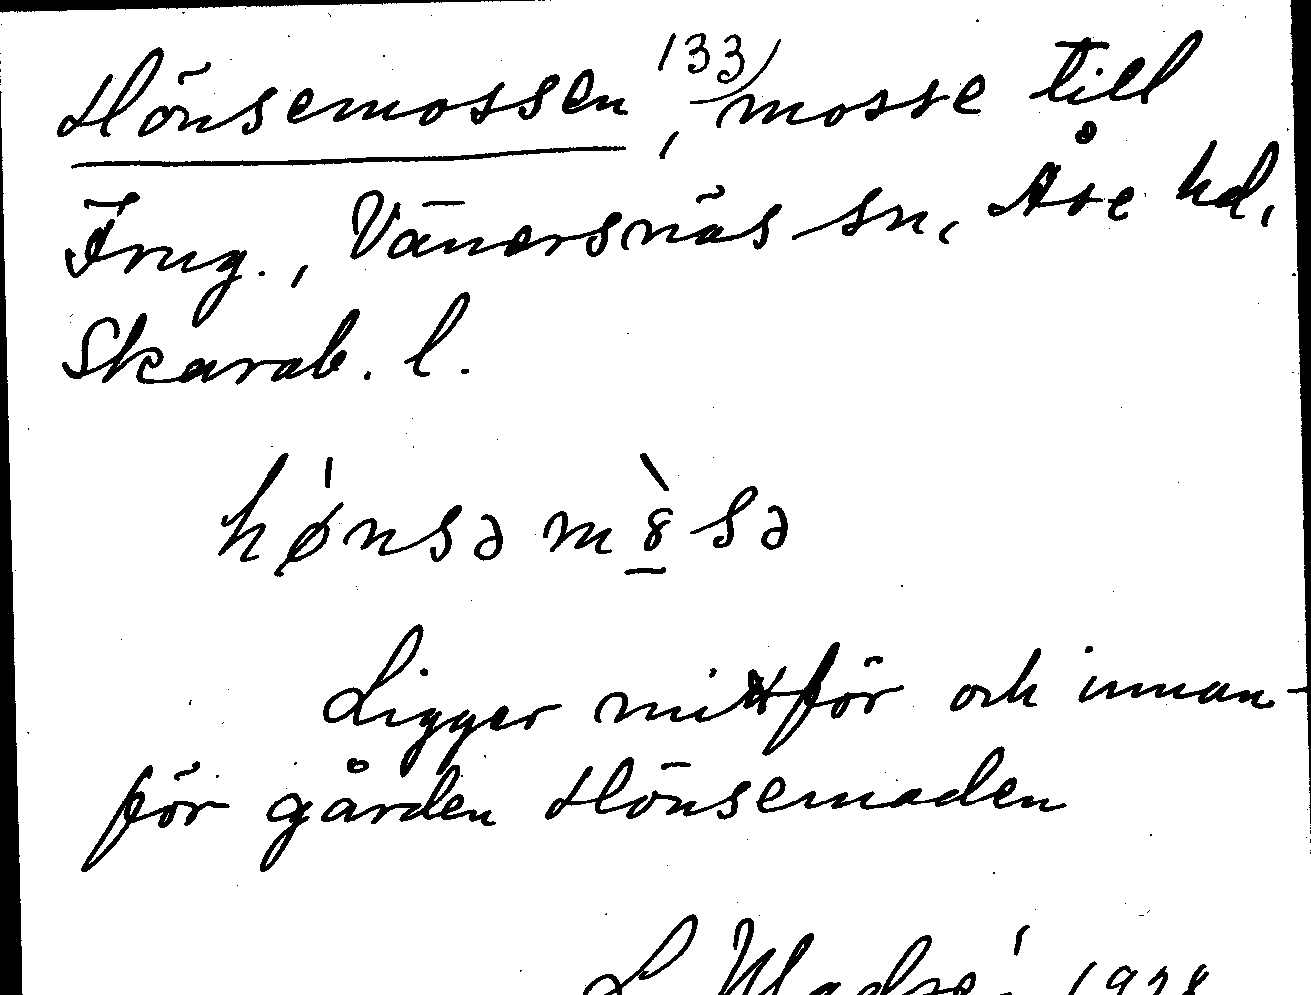 Hönsemossen 133), mosse till
Frug., Vänersnäs sn, Åse hd,
Skarab. l.
hǿnsə mò̱sə
Ligger mittför och innan-
för gården Hönsemaden
L 1928